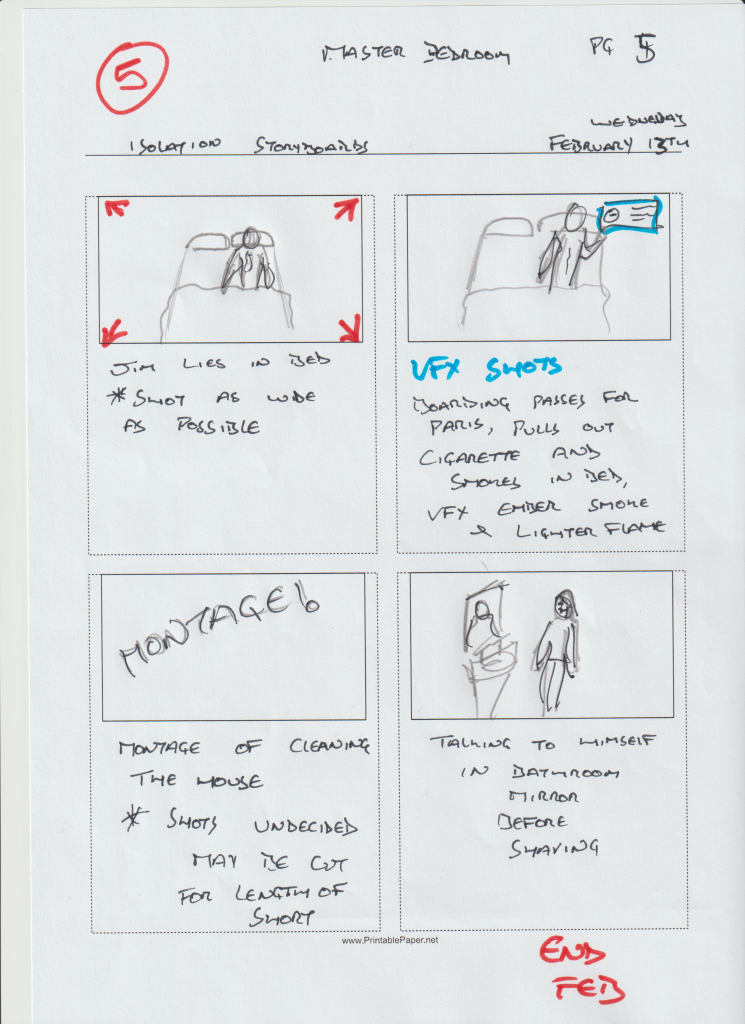 5
MASTER BEDROOM
PG 5
WEDNESDAY
ISOLATION STORYBOARDS
FEBRUARY 13TH
JIM LIES IN BED
* SHOT AS WIDE
AS POSSIBLE
VFX SHOTS
BOARDING PASSES FOR
PARIS, PULLS OUT
CIGARETTE AND
SMOKES IN BED,
VFX EMBER SMOKE
& LIGHTER FLAME
MONTAGE!
MONTAGE OF CLEANING
THE HOUSE
* SHOTS UNDECIDED
MAY BE CUT
FOR LENGTH OF
SHORT
TALKING TO HIMSELF
IN BATHROOM
MIRROR
BEFORE
SHAVING
www.PrintablePaper.net
END
FEB